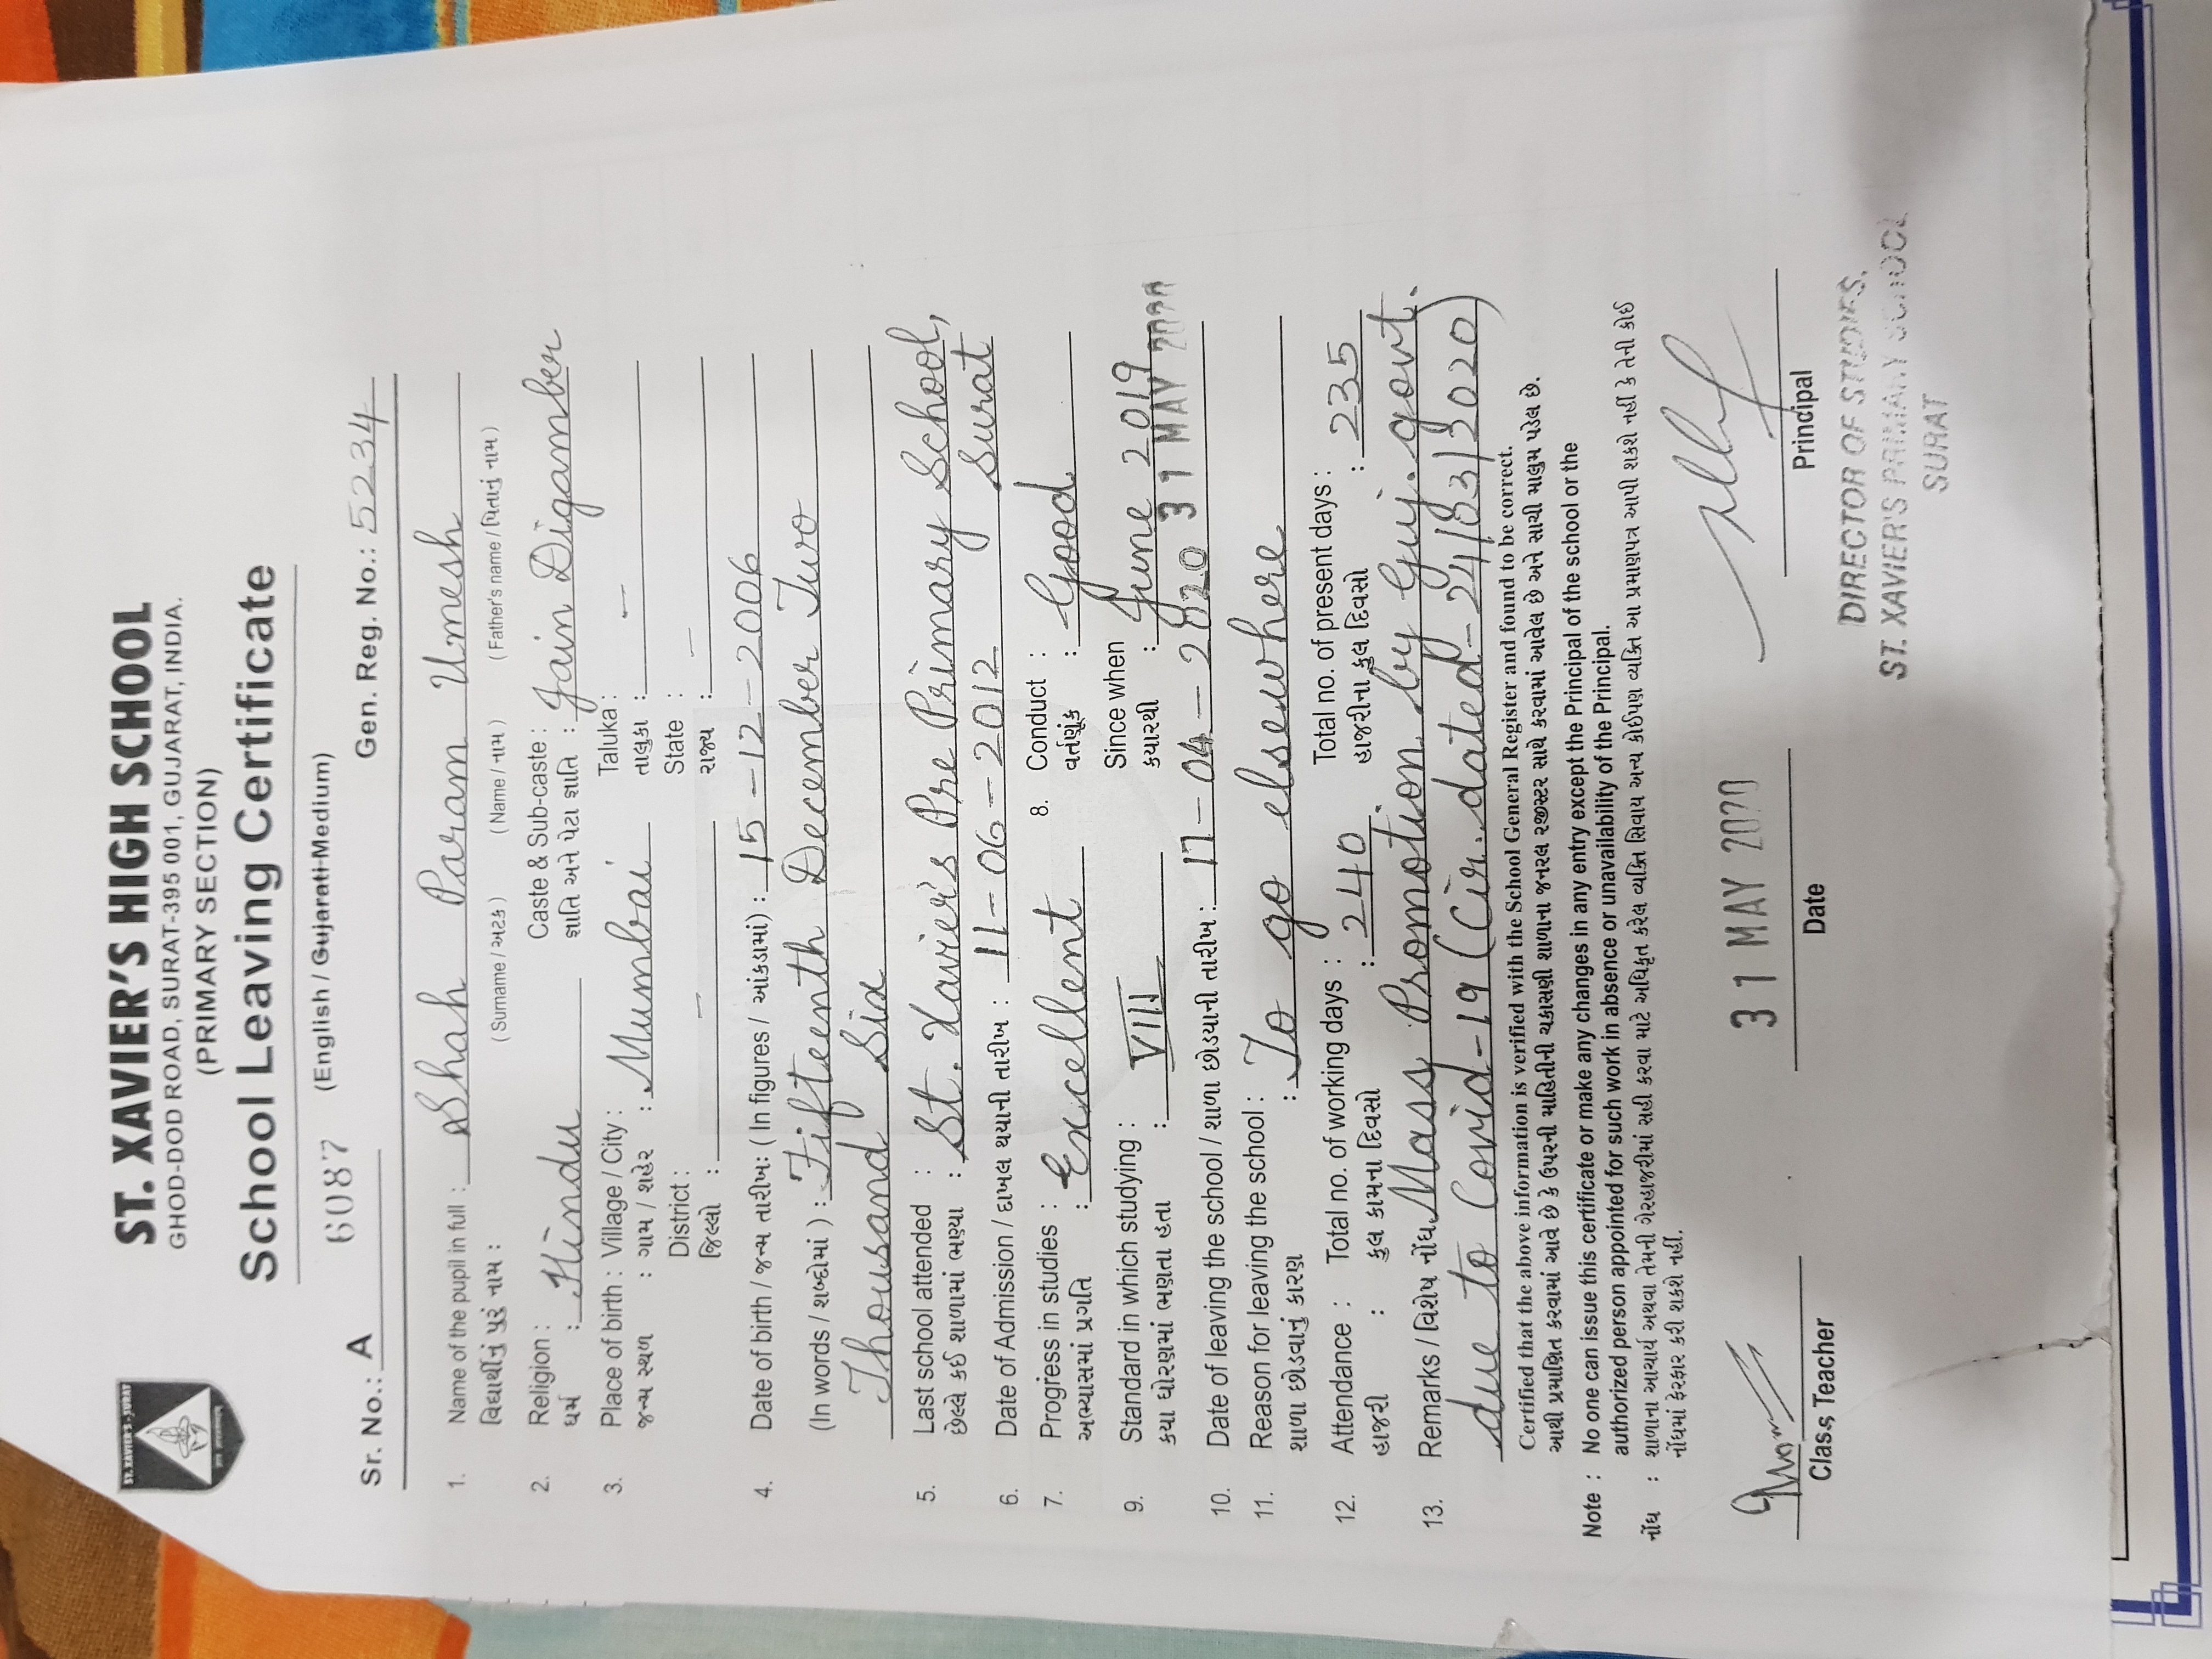 ST. XAVIER'S-SURAT
ST. XAVIER'S HIGH SCHOOL
GHOD-DOD ROAD, SURAT-395 001, GUJARAT, INDIA.
(PRIMARY SECTION)
School Leaving Certificate
6087 (English / Gujarati Medium)
Sr. No.: A Gen. Reg. No.: 5234
1. Name of the pupil in full : Shah Param Umesh
વિદ્યાર્થીનું પુરૂં નામ : (Surname / અટક) (Name / નામ) (Father's name / પિતાનું નામ)
2. Religion : Caste & Sub-caste :
ધર્મ : Hindu જ્ઞાતિ અને પેટા જ્ઞાતિ : Jain Digamber
3. Place of birth : Village / City : Taluka :
જન્મ સ્થળ : ગામ / શહેર : Mumbai તાલુકા : —
District : State :
જિલ્લો : — રાજ્ય : —
4. Date of birth / જન્મ તારીખ: ( In figures / આંકડામાં) : 15-12-2006
(In words / શબ્દોમાં ) : Fifteenth December Two
Thousand Six
5. Last school attended :
છેલ્લે કઈ શાળામાં ભણ્યા : St. Xavier's Pre Primary School,
Surat
6. Date of Admission / દાખલ થયાની તારીખ : 11-06-2012
7. Progress in studies : 8. Conduct :
અભ્યાસમાં પ્રગતિ : Excellent વર્તણુંક : Good
9. Standard in which studying : Since when
ક્યા ધોરણમાં ભણતા હતા : VIII ક્યારથી : June 2019
10. Date of leaving the school / શાળા છોડ્યાની તારીખ : 17-04-2020 31 MAY 2020
11. Reason for leaving the school :
શાળા છોડવાનું કારણ : To go elsewhere
12. Attendance : Total no. of working days : Total no. of present days :
હાજરી : કુલ કામના દિવસો : 240 હાજરીના કુલ દિવસો : 235
13. Remarks / વિશેષ નોંધ Mass Promotion by Guj. govt.
due to Covid-19 (Cir. dated-24/03/2020)
Certified that the above information is verified with the School General Register and found to be correct.
આથી પ્રમાણિત કરવામાં આવે છે કે ઉપરની માહિતીની ચકાસણી શાળાના જનરલ રજીસ્ટર સાથે કરવામાં આવેલ છે અને સાચી માલુમ પડેલ છે.
Note : No one can issue this certificate or make any changes in any entry except the Principal of the school or the
authorized person appointed for such work in absence or unavailability of the Principal.
નોંધ : શાળાના આચાર્ય અથવા તેમની ગેરહાજરીમાં સહી કરવા માટે અધિકૃત કરેલ વ્યક્તિ સિવાય અન્ય કોઈપણ વ્યક્તિ આ પ્રમાણપત્ર આપી શકશે નહીં કે તેની કોઈ
નોંધમાં ફેરફાર કરી શકશે નહીં.
31 MAY 2020
Class Teacher Date Principal
DIRECTOR OF STUDIES,
ST. XAVIER'S PRIMARY SCHOOL
SURAT